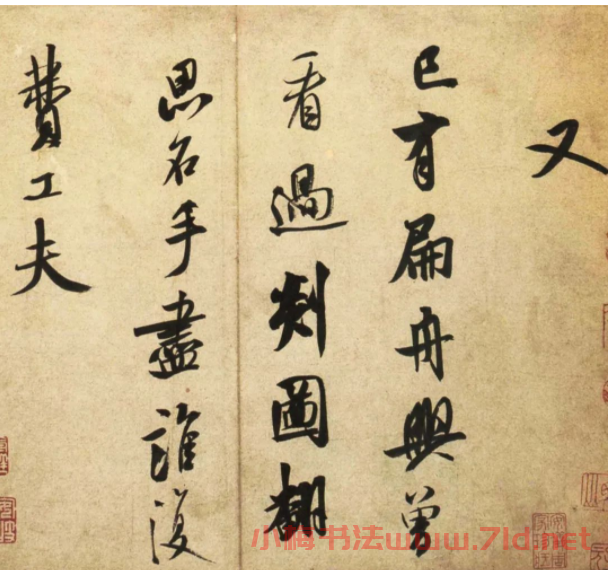 又
已有扁舟興曾
看過剡圖翻
思名手盡誰復
費工夫
小梅书法www.7ld.net